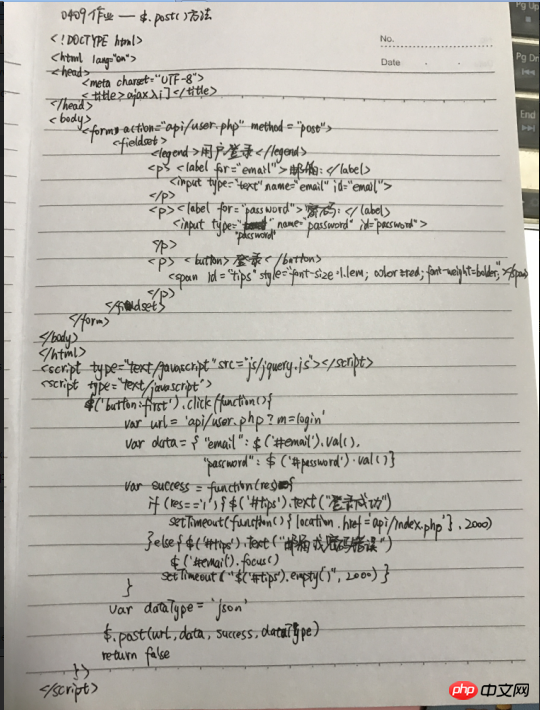 0409作业 — $.post()方法
No.
Date
<!DOCTYPE html>
<html lang="en">
<head>
<meta charset="UTF-8">
<title>ajax入门</title>
</head>
<body>
<form action="api/user.php" method="post">
<fieldset>
<legend>用户登录</legend>
<p><label for="email">邮箱:</label>
<input type="text" name="email" id="email">
</p>
<p><label for="password">密码:</label>
<input type="password" name="password" id="password">
</p>
<p><button>登录</button>
<span id="tips" style="font-size=1.1em; color=red; font-weight=bolder;"></span>
</p>
</fieldset>
</form>
</body>
</html>
<script type="text/javascript" src="js/jquery.js"></script>
<script type="text/javascript">
$('button:first').click(function(){
var url = 'api/user.php?m=login'
var data = { "email": $('#email').val(),
"password": $('#password').val()}
var success = function(res){
if (res=='1'){ $('#tips').text("登录成功")
setTimeout(function(){ location.href='api/index.php'},2000)
}else{ $('#tips').text("邮箱或密码错误")
$('#email').focus()
setTimeout("$('#tips').empty()",2000)}
}
var dataType = 'json'
$.post(url,data,success,dataType)
return false
})
</script>
Pg Up
Pg Dn
End
php 中文网